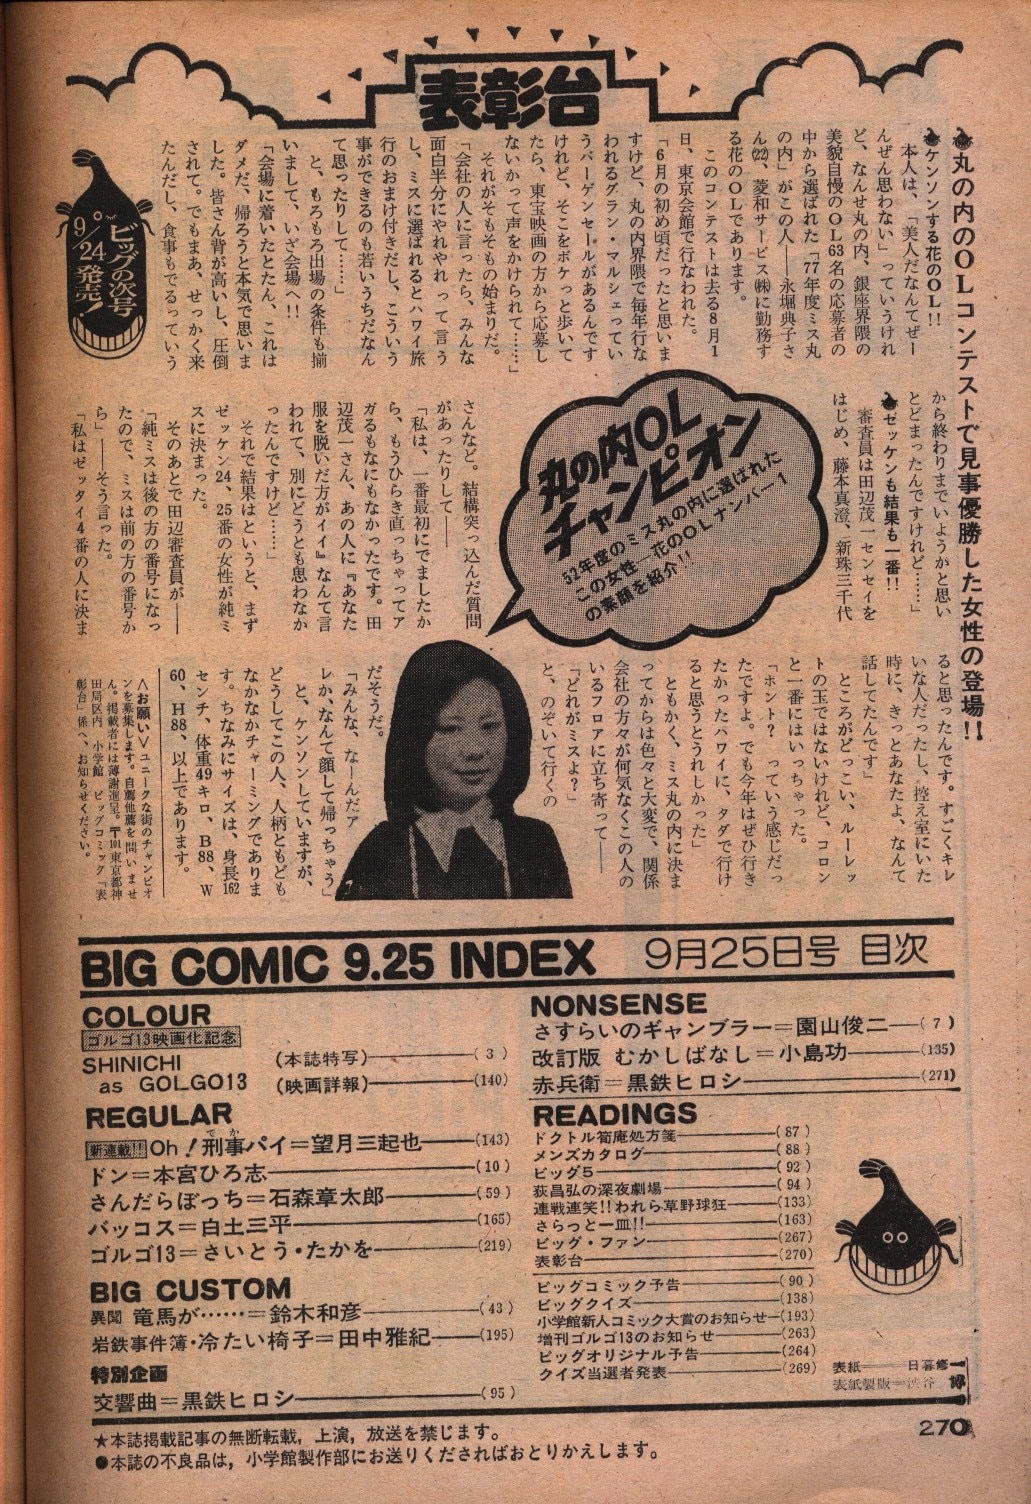 表彰台
丸の内のOLコンテストで見事優勝した女性の登場!!
ケンソンする花のOL!!
本人は、「美人だなんてぜー
んぜん思わない」っていうけれ
ど、なんせ丸の内、銀座界隈の
美貌自慢のOL63名の応募者の
中から選ばれた「77年度ミス丸
の内」がこの人――永堀典子さ
ん(22)、菱和サービス㈱に勤務す
る花のOLであります。
このコンテストは去る8月1
日、東京会館で行なわれた。
「6月の初め頃だったと思いま
すけど、丸の内界隈で毎年行な
われるグラン・マルシェってい
うバーゲンセールがあるんです
けれど、そこをボケっと歩いて
たら、東宝映画の方から応募し
ないかって声をかけられて……」
それがそもそもの始まりだ。
「会社の人に言ったら、みんな
面白半分にやれやれって言う
し、ミスに選ばれるとハワイ旅
行のおまけ付きだし、こういう
事ができるのも若いうちだなん
て思ったりして……」
と、もろもろ出場の条件も揃
いまして、いざ会場へ!!
「会場に着いたとたん、これは
ダメだ、帰ろうと本気で思いま
した。皆さん背が高いし、圧倒
されて。でもまあ、せっかく来
たんだし、食事もでるっていう
ビッグの次号
9/24発売!
から終わりまでいようかと思い
とどまったんですけれど……」
ゼッケンも結果も一番!!
審査員は田辺茂一センセイを
はじめ、藤本真澄、新珠三千代
丸の内OL
チャンピオン
52年度のミス丸の内に選ばれた
この女性―花のOLナンバー1
の素顔を紹介!!
さんなど。結構突っ込んだ質問
があったりして――
「私は、一番最初にでましたか
ら、もうひらき直っちゃってア
ガるもなにもなかったです。田
辺茂一さん、あの人に『あなた
服を脱いだ方がイイ』なんて言
われて、別にどうとも思わなか
ったんですけど……」
それで結果はというと、まず
ゼッケン24、25番の女性が純ミ
スに決まった。
そのあとで田辺審査員が――
「純ミスは後の方の番号になっ
たので、ミスは前の方の番号か
ら」――そう言った。
「私はゼッタイ4番の人に決ま
ると思ったんです。すごくキレ
いな人だったし、控え室にいた
時に、きっとあなたよ、なんて
話してたんです」
ところがどっこい、ルーレッ
トの玉ではないけれど、コロン
と一番にはいっちゃった。
「ホント？っていう感じだっ
たですよ。でも今年はぜひ行き
たかったハワイに、タダで行け
ると思うとうれしかった」
ともかく、ミス丸の内に決ま
ってからは色々と大変で、関係
会社の方々が何気なくこの人の
いるフロアに立ち寄って――
「どれがミスよ？」
と、のぞいて行くの
だそうだ。
「みんな、なーんだア
レか、なんて顔して帰っちゃう」
と、ケンソンしていますが、
どうしてこの人、人柄ともども
なかなかチャーミングでありま
す。ちなみにサイズは、身長162
センチ、体重49キロ、B88、W
60、H88、以上であります。
＜お願い＞ユニークな街のチャンピオ
ンを募集します。自薦他薦を問いませ
ん。掲載者には薄謝進呈。〒101東京都神
田局区内 小学館 ビッグコミック「表
彰台」係へ、お知らせください。
BIG COMIC 9.25 INDEX 9月25日号 目次
COLOUR
ゴルゴ13映画化記念
SHINICHI （本誌特写）―(3)
as GOLGO13 （映画詳報）―(140)
REGULAR
新連載!! Oh!刑事パイ＝望月三起也―(143)
でか
ドン＝本宮ひろ志―(10)
さんだらぼっち＝石森章太郎―(59)
バッコス＝白土三平―(165)
ゴルゴ13＝さいとう・たかを―(219)
BIG CUSTOM
異聞 竜馬が……＝鈴木和彦―(43)
岩鉄事件簿・冷たい椅子＝田中雅紀―(195)
特別企画
交響曲＝黒鉄ヒロシ―(95)
NONSENSE
さすらいのギャンブラー＝園山俊二―(7)
改訂版 むかしばなし＝小島功―(135)
赤兵衛＝黒鉄ヒロシ―(271)
READINGS
ドクトル筍庵処方箋―(87)
メンズカタログ―(88)
ビッグ5―(92)
荻昌弘の深夜劇場―(94)
連戦連笑!!われら草野球狂―(133)
さらっと一皿!!―(163)
ビッグ・ファン―(267)
表彰台―(270)
ビッグコミック予告―(90)
ビッグクイズ―(138)
小学館新人コミック大賞のお知らせ―(193)
増刊ゴルゴ13のお知らせ―(263)
ビッグオリジナル予告―(264)
クイズ当選者発表―(269)
表紙―日暮修一
表紙製版―渋谷
★本誌掲載記事の無断転載，上演，放送を禁じます。
●本誌の不良品は，小学館製作部にお送りくださればおとりかえします。
270